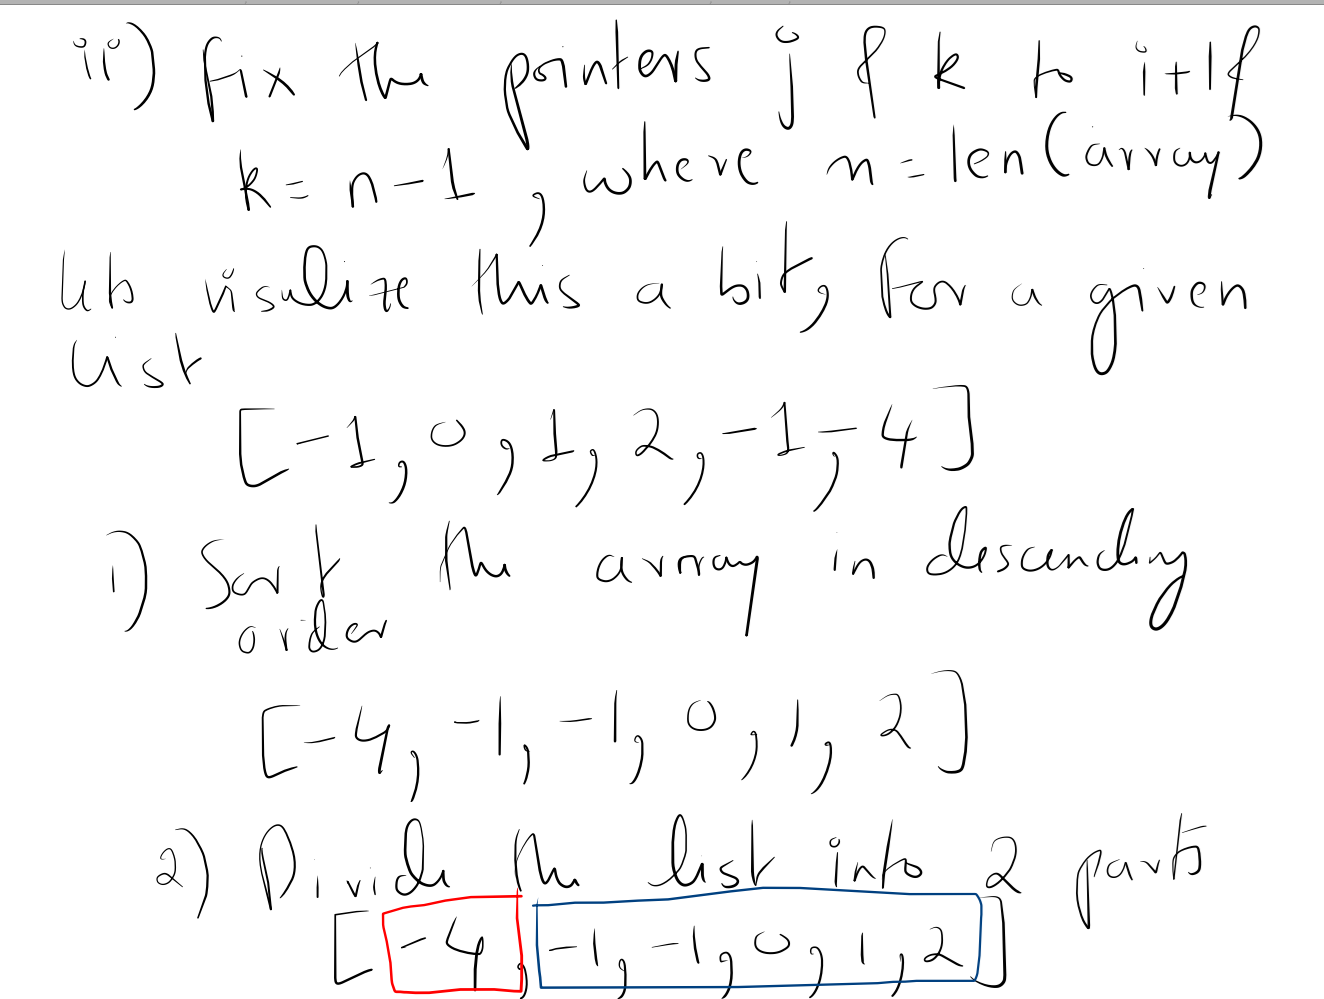 ii) fix the pointers j & k to i+1 &
k = n-1 , where n = len(array)
lets visulize this a bit, for a given
list
[-1, 0, 1, 2, -1, -4]
1) Sort the array in descending
order
[-4, -1, -1, 0, 1, 2]
2) Divide the list into 2 parts
[-4, -1, -1, 0, 1, 2]